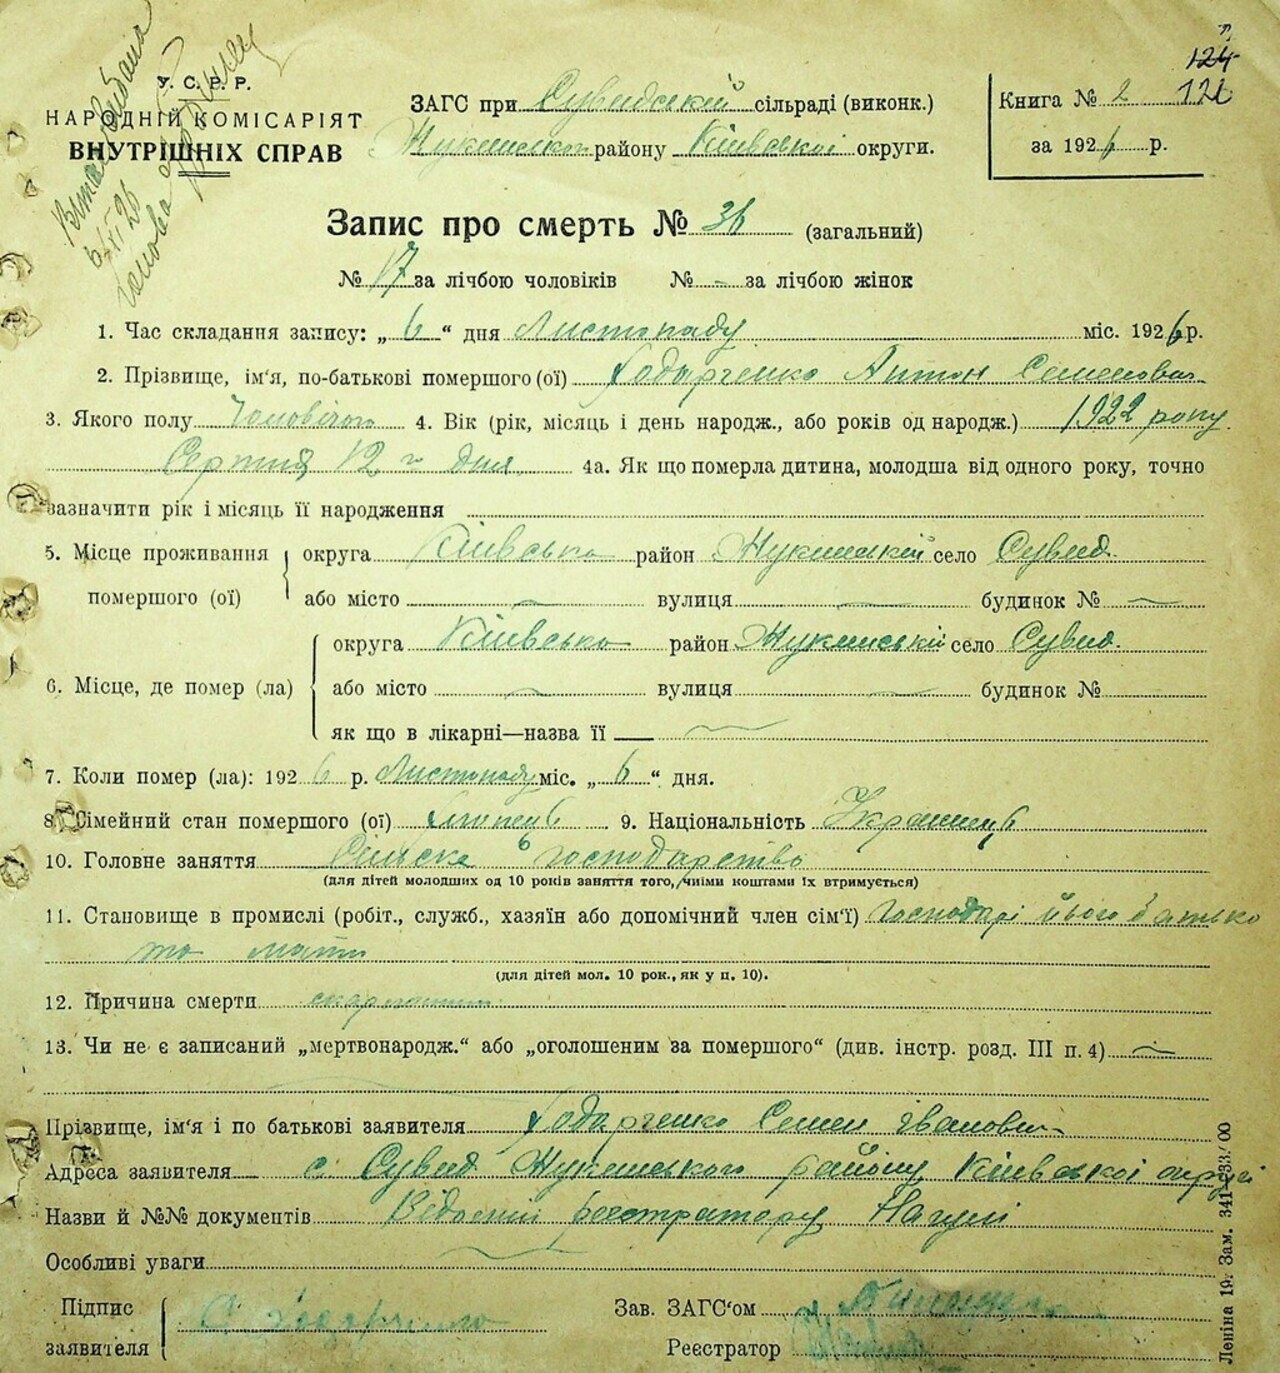 У. С. Р. Р.
НАРОДНІЙ КОМІСАРІЯТ
ВНУТРІШНІХ СПРАВ
ЗАГС при Сувидській сільраді (виконк.)
Жукинського району Київської округи.
124
Книга № 2 121
за 1926 р.
Запис про смерть № 36 (загальний)
№ 17 за лічбою чоловіків № - за лічбою жінок
1. Час складання запису: „6“ дня Листопаду міс. 1926 р.
2. Прізвище, ім'я, по-батькові помершого (ої) Ходарченко Антон Семенович
3. Якого полу Чоловічого 4. Вік (рік, місяць і день народж., або років од народж.) 1922 року
Серпня 12 дня 4а. Як що померла дитина, молодша від одного року, точно
зазначити рік і місяць її народження
5. Місце проживання помершого (ої) округа Київська район Жукинській село Сувид
або місто вулиця будинок №
6. Місце, де помер (ла) округа Київська район Жукинській село Сувид
або місто вулиця будинок №
як що в лікарні—назва її
7. Коли помер (ла): 1926 р. Листопаду міс. „6“ дня.
8. Сімейний стан помершого (ої) 9. Національність Українець
10. Головне заняття Сільське господарство
(для дітей молодших од 10 років заняття того, чиїми коштами їх втримується)
11. Становище в промислі (робіт., служб., хазяїн або допомічний член сім'ї) Господарі його батько
та мати
(для дітей мол. 10 рок., як у п. 10).
12. Причина смерти скарлатина
13. Чи не є записаний „мертвонародж.“ або „оголошеним за помершого“ (див. інстр. розд. III п. 4)
Прізвище, ім'я і по батькові заявителя Ходарченко Семен Іванович
Адреса заявителя с. Сувид Жукинського району Київської округи
Назви й №№ документів реєстратору
Особливі уваги
Підпис заявителя С Ходарченко
Зав. ЗАГС'ом
Реєстратор
Леніна 19. Зам. 341